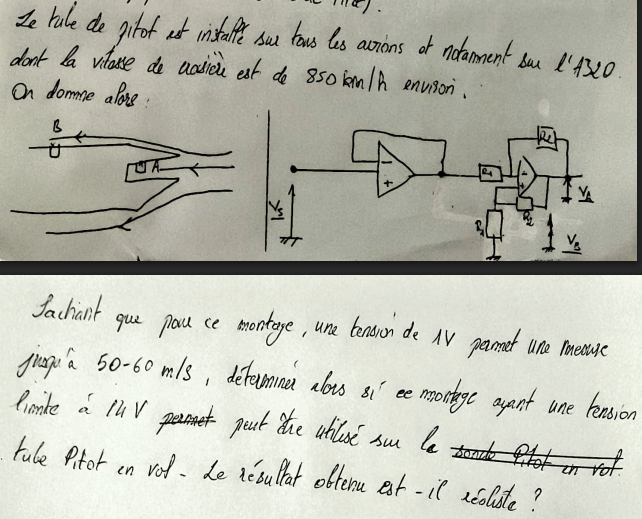 Le tube de pitot est installé sur tous les avions et notamment sur l'A320
dont la vitesse de croisière est de 850 km/h environ.
On donne alors:
B
A
V_S
-
+
R_1
R_2
-
+
R_1
R_2
V_A
V_B
Sachant que pour ce montage, une tension de 1V permet une mesure
jusqu'à 50-60 m/s, déterminer alors si ce montage ayant une tension
limite à 14 V permet peut être utilisé sur le sonde Pitot en vol.
tube Pitot en vol - Le résultat obtenu est-il réaliste ?